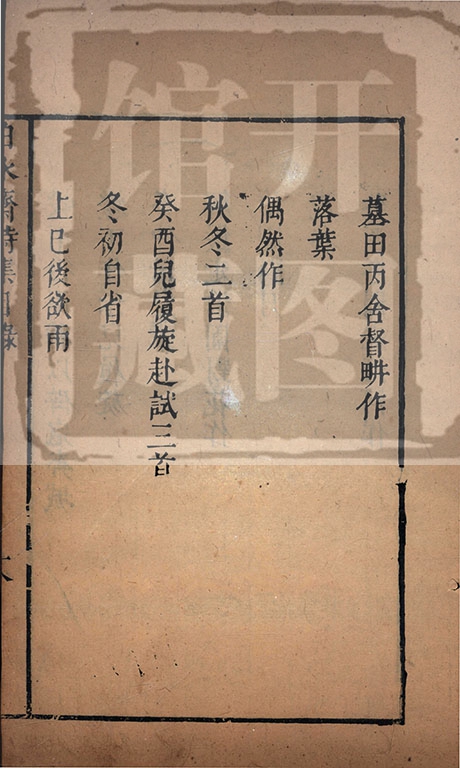 墓田丙舍督畊作
落葉
偶然作
秋冬二首
癸酉兒履旋赴試三首
冬初自省
上巳後欲雨
白水齋詩集目錄
开图馆藏